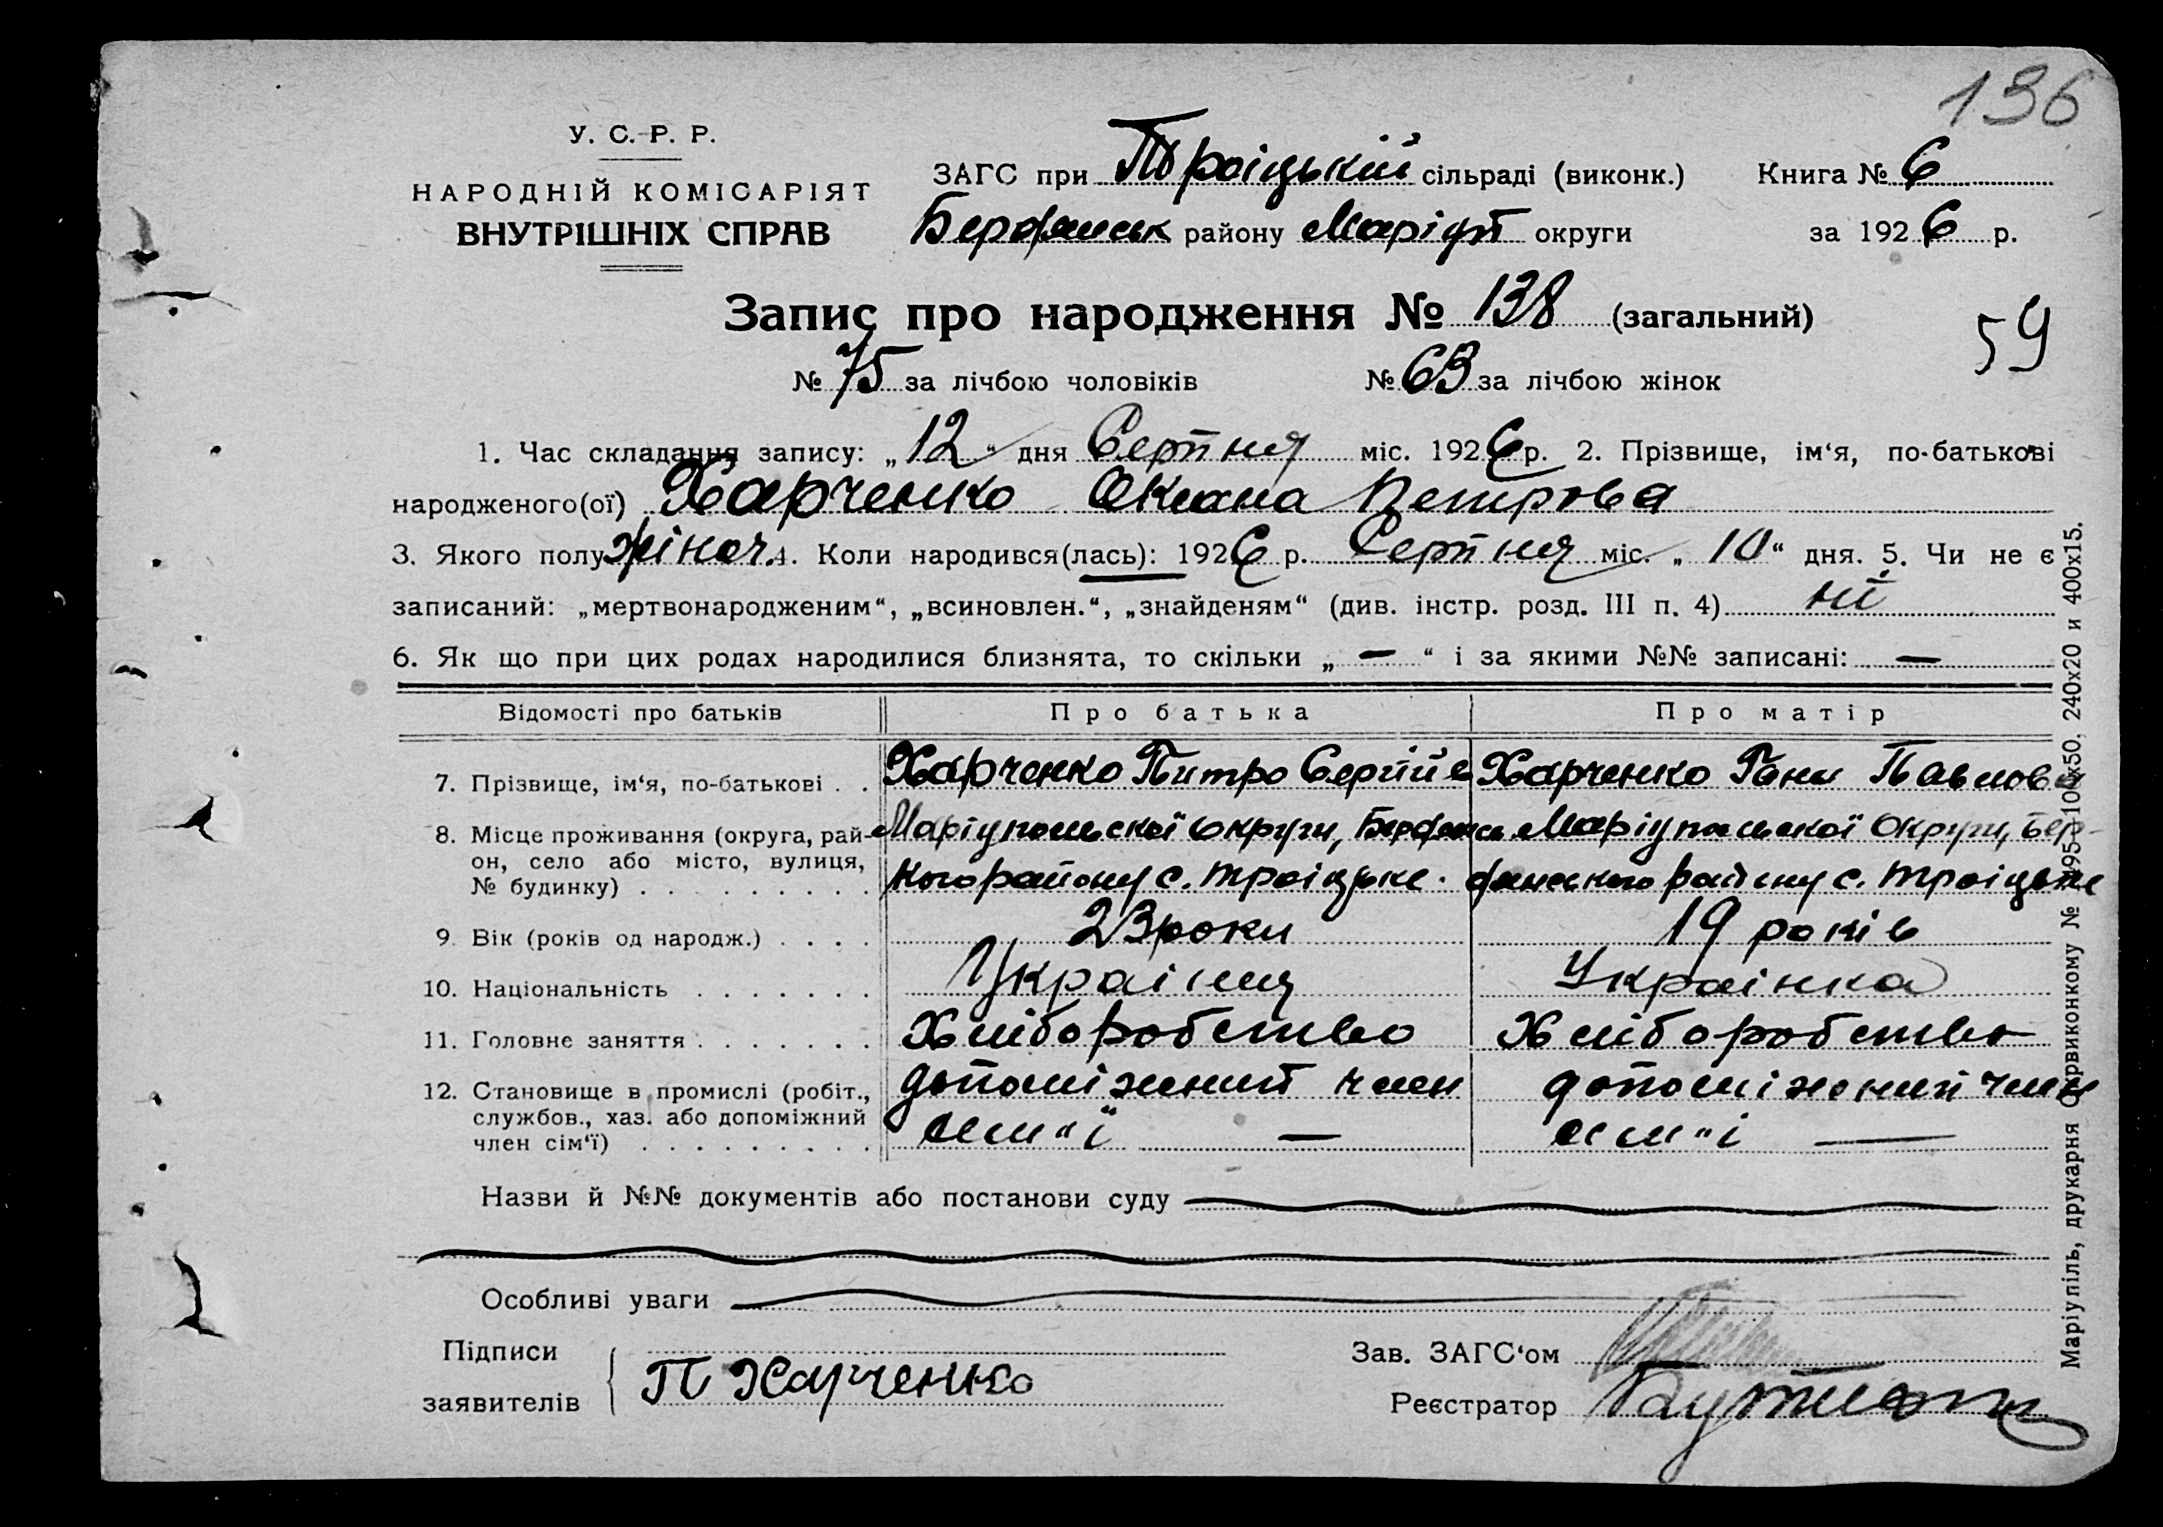 136
У. С. Р. Р.
НАРОДНІЙ КОМІСАРІЯТ
ВНУТРІШНІХ СПРАВ
ЗАГС при Троіцькій сільраді (виконк.) Книга № 6
Бердянськ району Маріюп округи за 1926 р.
Запис про народження № 138 (загальний)
59
№ 75 за лічбою чоловіків № 63 за лічбою жінок
1. Час складання запису: „12“ дня Серпня міс. 1926 р. 2. Прізвище, ім‘я, по-батькові
народженого(ої) Харченко Оксана Петрова
3. Якого полу жіноч. 4. Коли народився(лась): 1926 р. Серпня міс. „10“ дня. 5. Чи не є
записаний: „мертвонародженим“, „всиновлен.“, „знайденям“ (див. інстр. розд. III п. 4) ні
6. Як що при цих родах народилися близнята, то скільки „—“ і за якими №№ записані: —
Відомості про батьків Про батька Про матір
7. Прізвище, ім‘я, по-батькові . . Харченко Питро Сергійв Харченко Ганн Павлова
8. Місце проживання (округа, рай- Маріупольської округи, Бердянсь Маріупольської Округи, Бер-
он, село або місто, вулиця, кого району с. Троіцьке. дянського району с. Троіцьке
№ будинку) . . . . . . . . .
9. Вік (років од народж.) . . . . 23 роки 19 років
10. Національність . . . . . . . Украінц Украінка
11. Головне заняття . . . . . . . Хліборобство Хліборобство
12. Становище в промислі (робіт., допоміжний член допоміжний член
службов., хаз. або допоміжний сим"і — сим"і —
член сім‘ї) . . . . . . . . .
Назви й №№ документів або постанови суду
Особливі уваги
Підписи
заявителів П Харченко
Зав. ЗАГС‘ом
Реєстратор
Маріупіль, друкарня Окрвиконкому № 240x20 и 400x15.